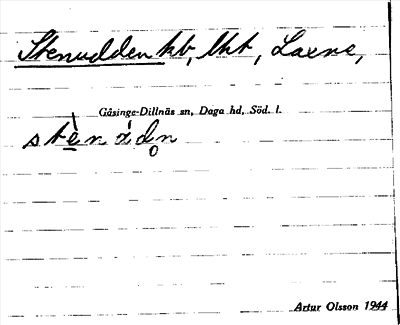 Stenudden hb, lht, Laxne,
Gåsinge-Dillnäs sn, Daga hd, Söd. l.
Artur Olsson 1944